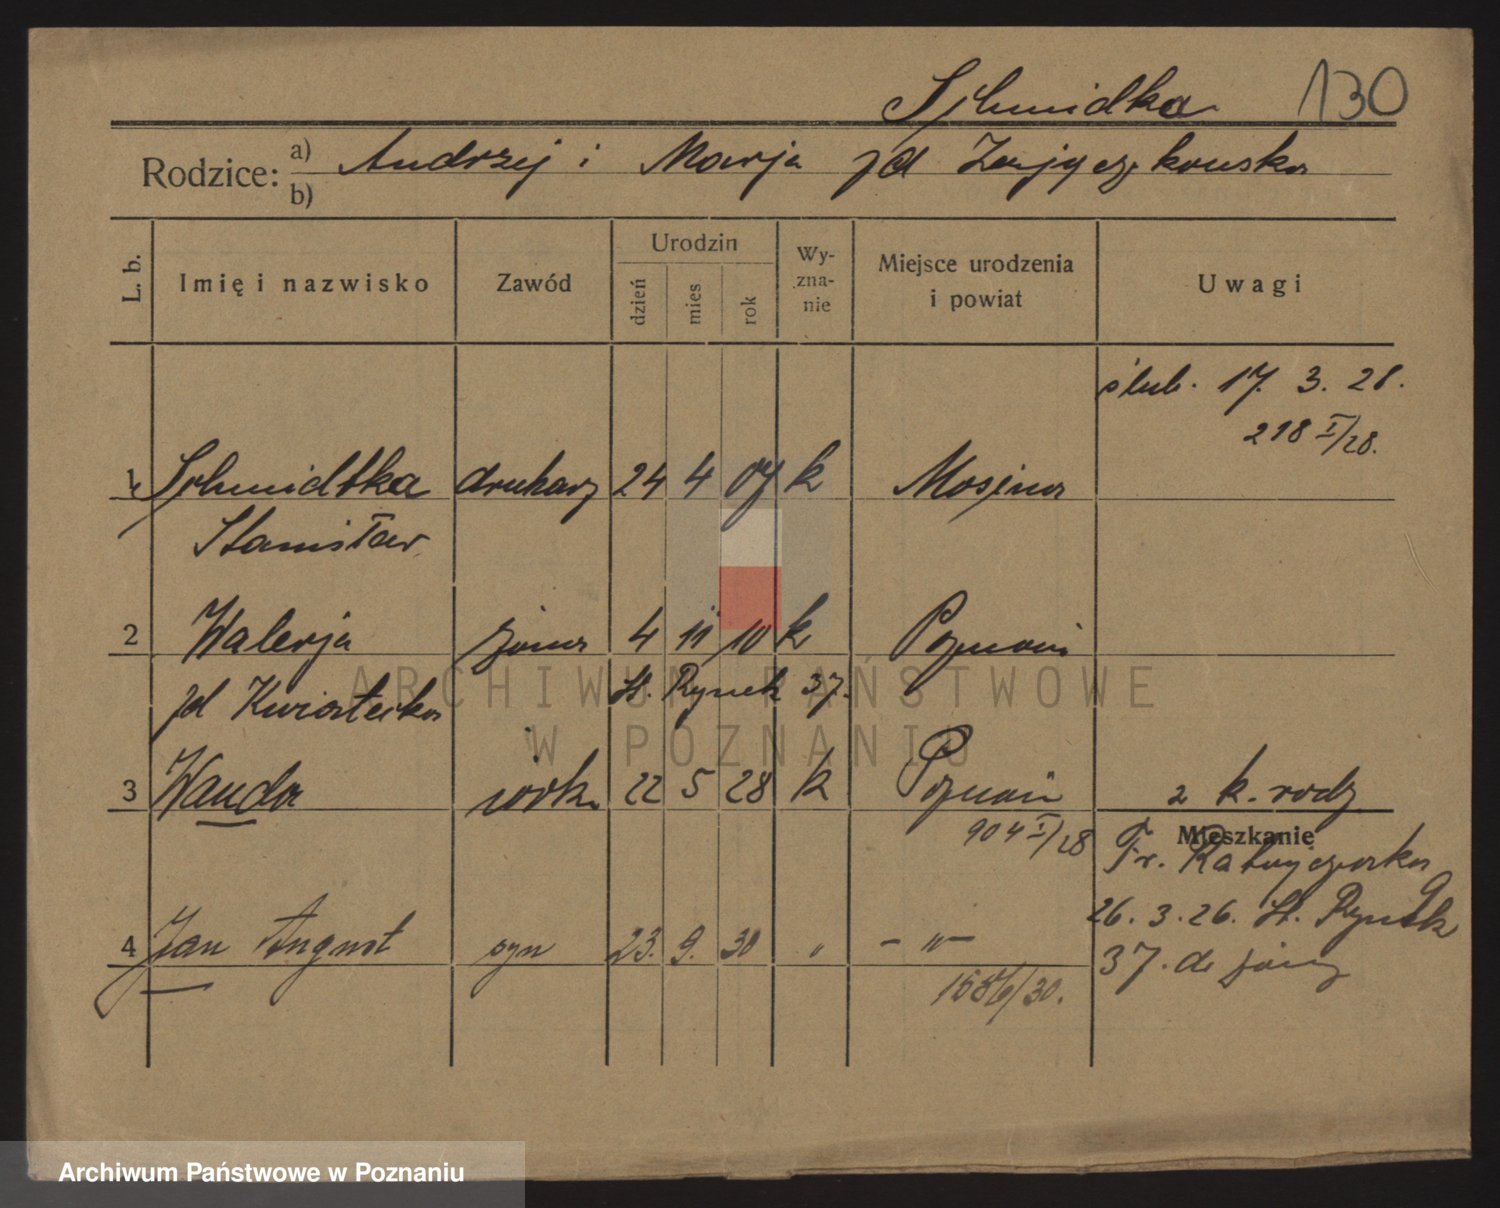 Schmidka 130
Rodzice: a) Andrzej i Marja zd Zajączkowska
b)
L. b. Imię i nazwisko Zawód Urodzin dzień mies rok Wyznanie Miejsce urodzenia i powiat Uwagi
ślub. 17. 3. 28.
218 I/28.
1 Schmidtka drukarz 24 4 07 k Mosina
Stanisław
2 Walerja żona 4 11 10 k Poznań
zd Kwiatecka St. Rynek 37.
3 Wanda córka 22 5 28 k Poznań z k. rodz
904 I/28 Mieszkanie
Fr. Ratajczaka 9
26. 3. 26. St. Rynek
4 Jan August syn 23. 9. 30 " - " - 37. do żony
1556/30.
ARCHIWUM PAŃSTWOWE
W POZNANIU
Archiwum Państwowe w Poznaniu